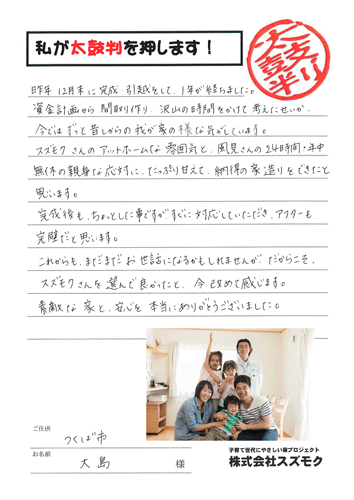 私が太鼓判を押します！
太鼓判
昨年12月末に完成・引越をして、1年が経ちました。
資金計画から間取り作り、沢山の時間をかけて考えたせいか、
今ではずっと昔しからの我が家の様な気がしています。
スズモクさんのアットホームな雰囲気と、風見さんの24時間・年中
無休の親身な応対に、たっぷり甘えて、納得の家造りをできたと
思います。
完成後も、ちょっとした事ですがすぐに対応していただき、アフターも
完璧だと思います。
これからも、まだまだお世話になるかもしれませんが、だからこそ、
スズモクさんを選んで良かったと、今改めて感じます。
素敵な家と、安心を本当にありがとうございました。
ご住所
つくば市
お名前
大島 様
子育て世代にやさしい家プロジェクト
株式会社スズモク